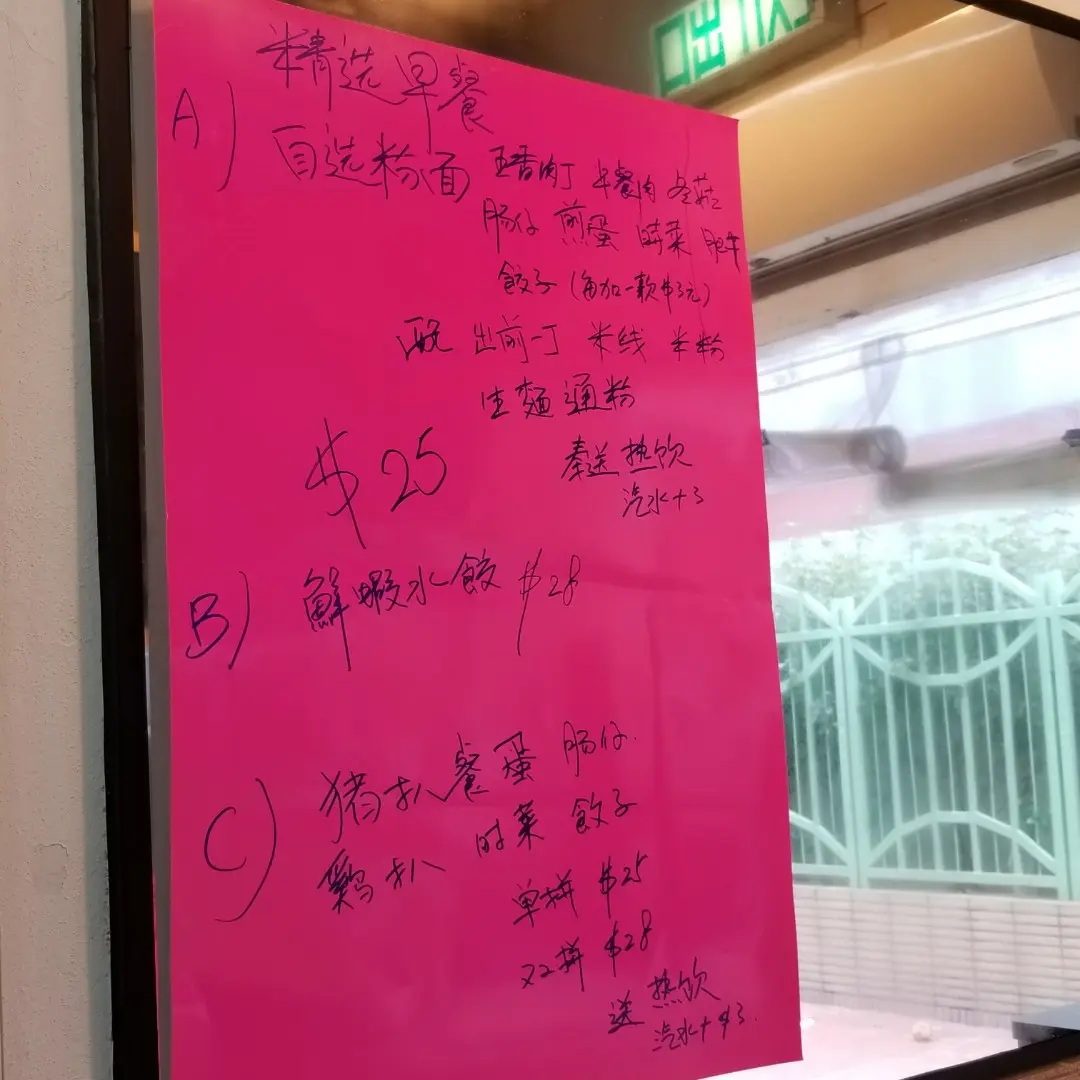 出口
精选早餐
A) 自选粉面 五香肉丁 午餐肉 冬菇
肠仔 煎蛋 時菜 肥牛
餃子 (每加一款$3元)
配 出前一丁 米线 米粉
生麵 通粉
$25 奉送热饮
汽水+3
B) 鮮蝦水餃 $28
C) 猪扒餐 蛋 肠仔.
鷄扒 时菜 餃子
单拼 $25
双拼 $28
送 热饮
汽水+$3.